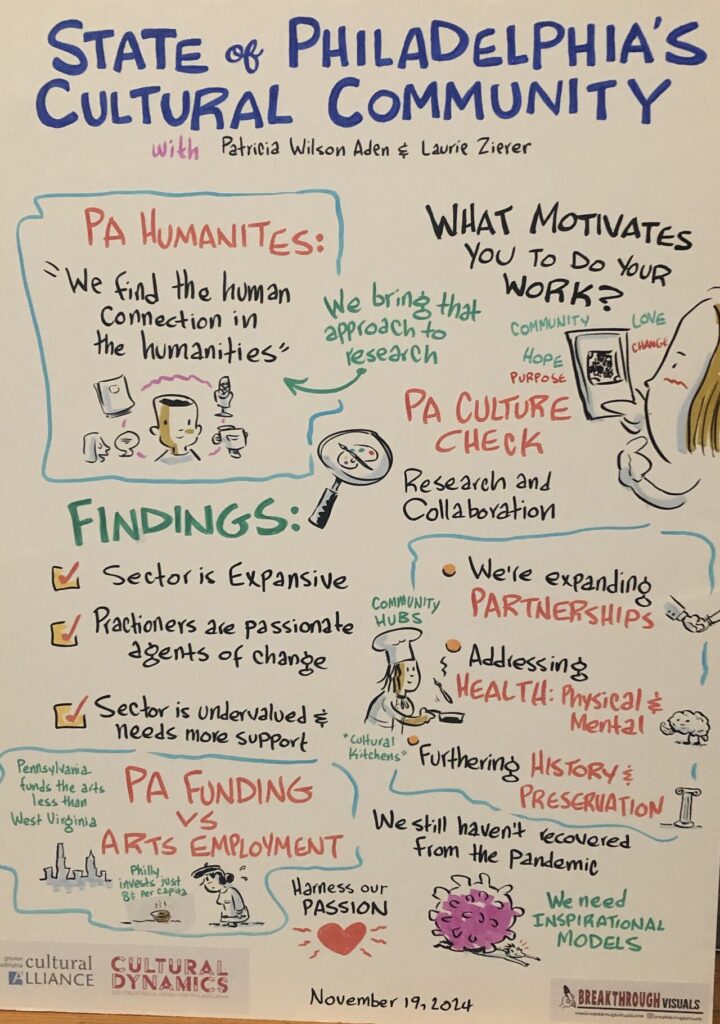 STATE of PHILADELPHIA'S
CULTURAL COMMUNITY
with Patricia Wilson Aden & Laurie Zierer
PA HUMANITES:
"We find the human
connection in
the humanities"
We bring that
approach to
research
WHAT MOTIVATES
YOU TO DO YOUR
WORK?
COMMUNITY
LOVE
HOPE
CHANGE
PURPOSE
PA CULTURE
CHECK
Research and
Collaboration
FINDINGS:
Sector is Expansive
Practioners are passionate
agents of change
Sector is undervalued &
needs more support
COMMUNITY
HUBS
"Cultural
Kitchens"
We're expanding
PARTNERSHIPS
Addressing
HEALTH: Physical &
Mental
Furthering HISTORY &
PRESERVATION
Pennsylvania
funds the arts
less than
West Virginia
PA FUNDING
VS
ARTS EMPLOYMENT
Philly
invests just
8¢ per capita
Harness our
PASSION
We still haven't recovered
from the Pandemic
We need
INSPIRATIONAL
MODELS
cultural
ALLIANCE
CULTURAL
DYNAMICS
November 19, 2024
BREAKTHROUGH VISUALS